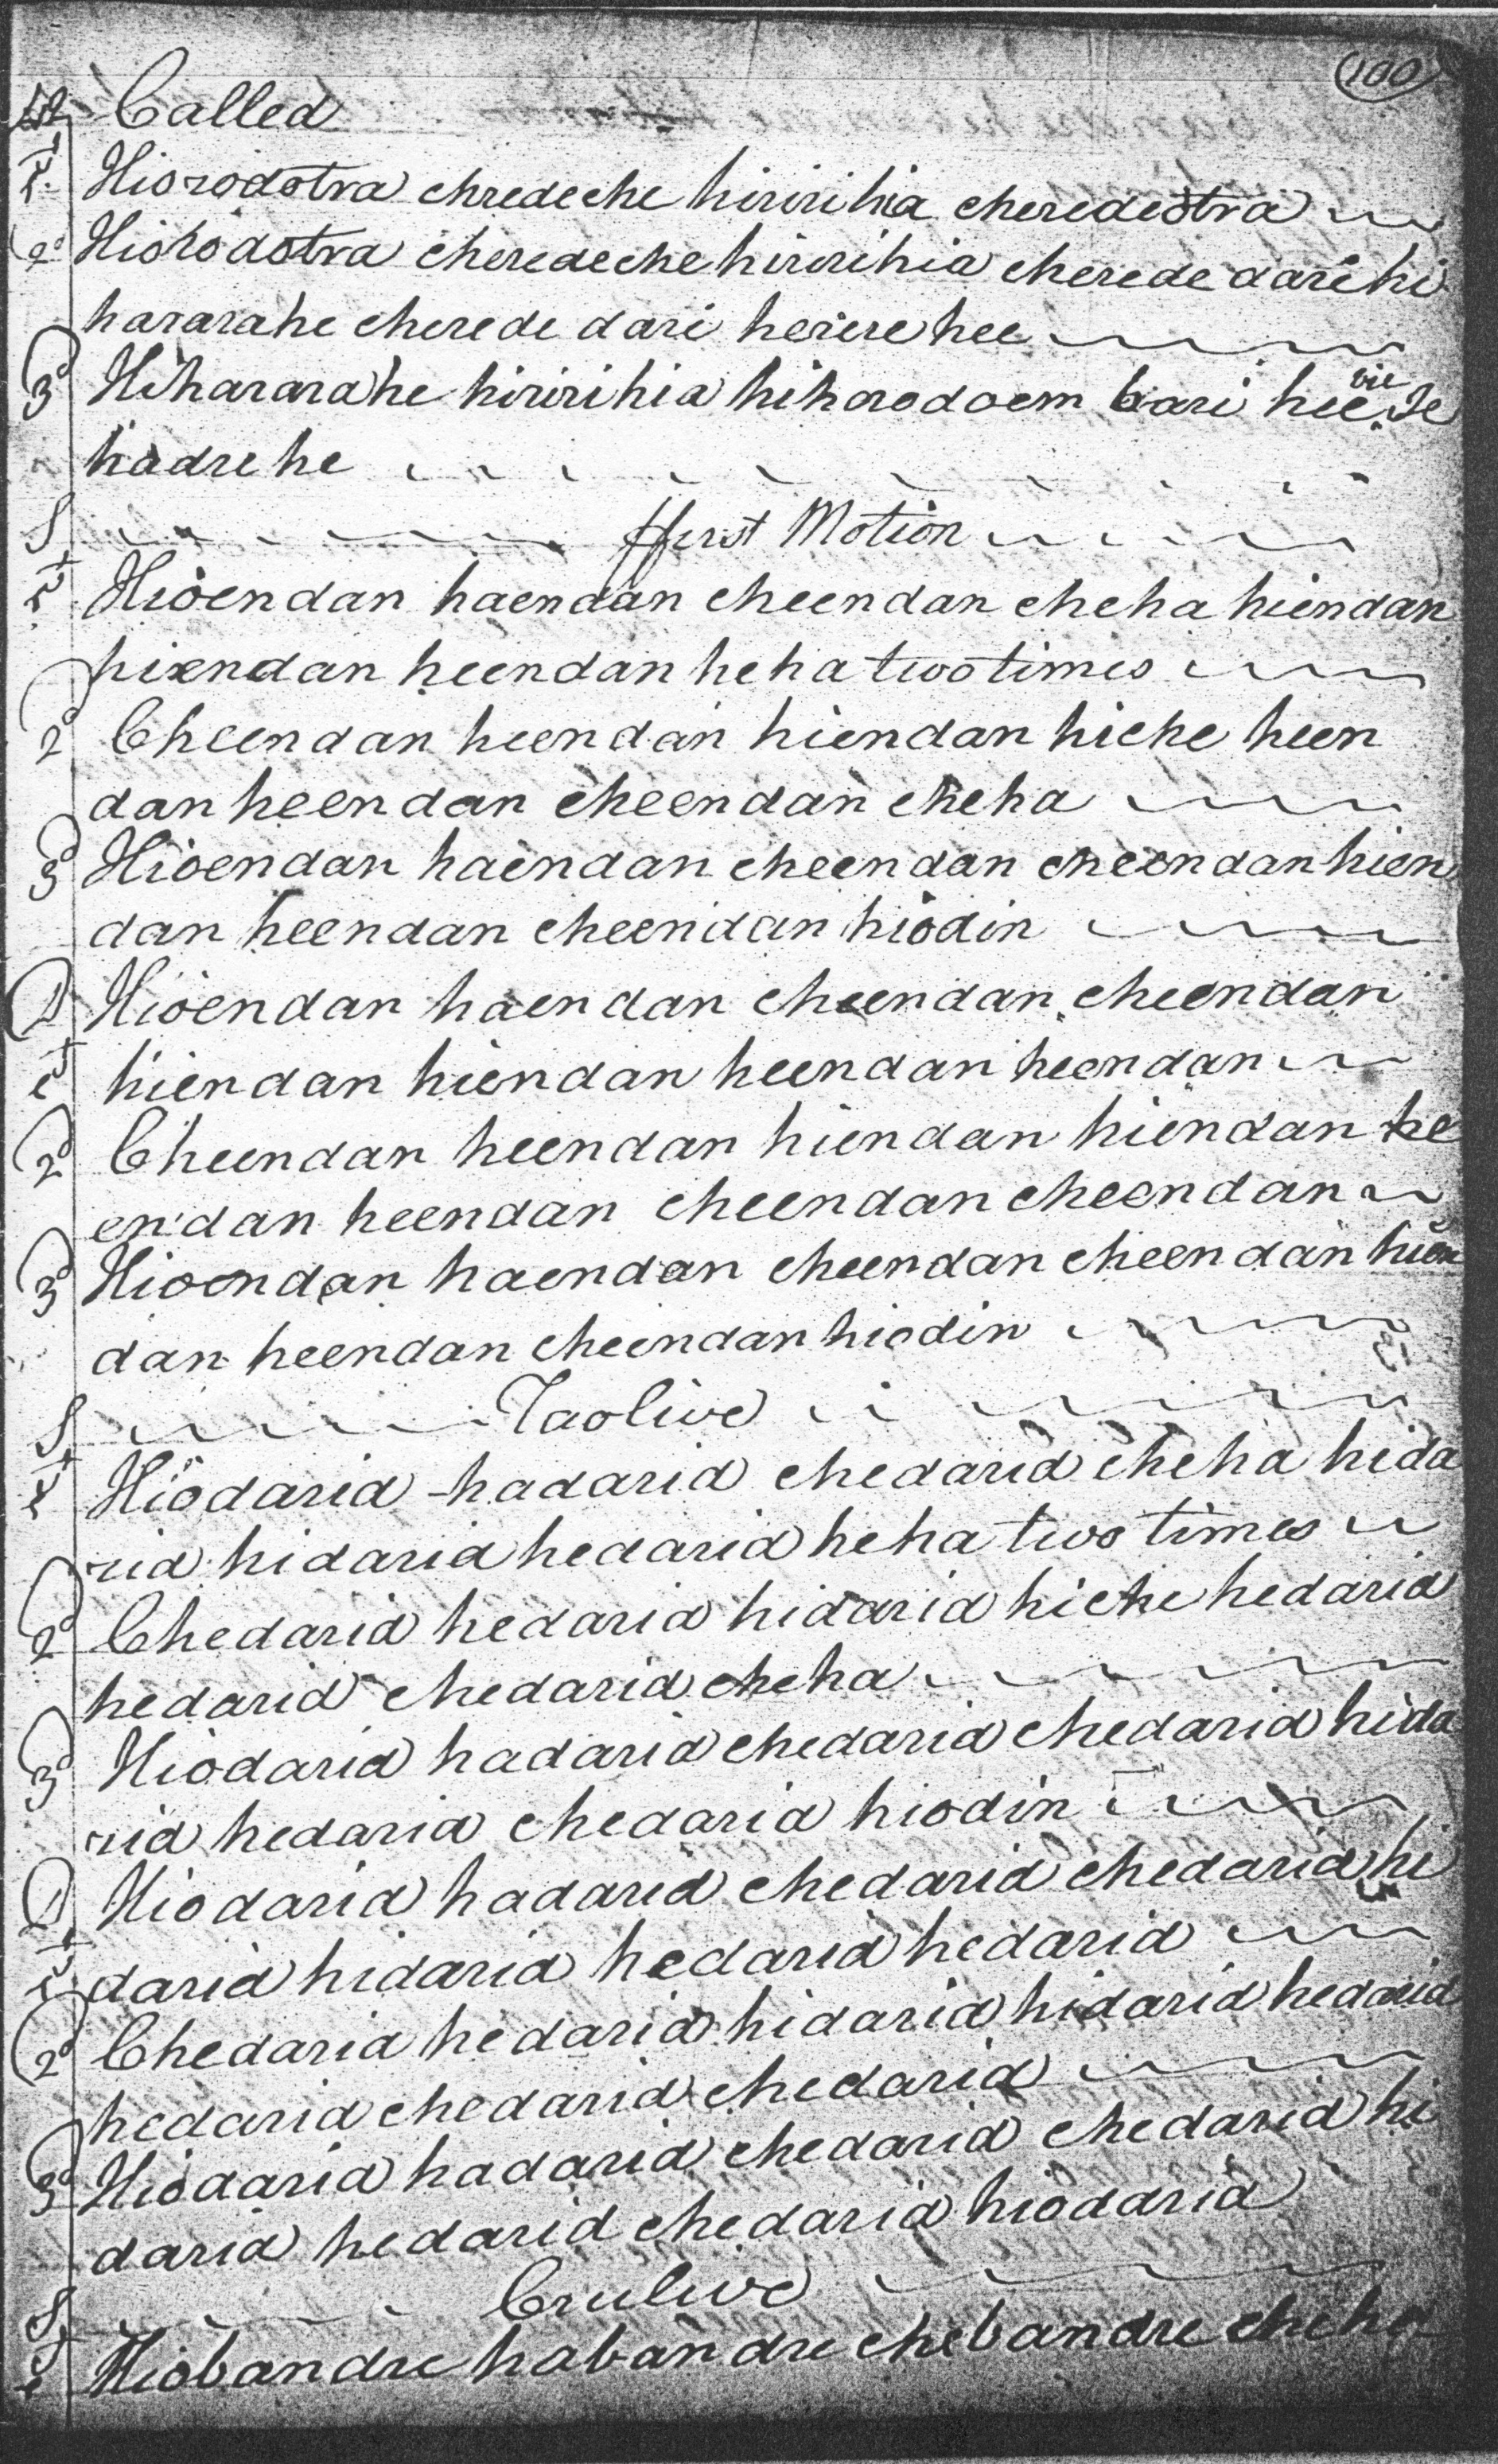 100
Called
1st Hiorodotra chredeche hiririhia cheredeotra
2d Hiorodotra cheredeche hiririhia cherede darihi
hararahe cherede dari hererehee
3d Hihararahe hiririhia hihorodoem bari hee vie Je
hadrehe
S ffirst Motion
1st Hioendan haendan cheendan cheha hiendan
hiendan heendan heha two times
2d Cheendan heendan hiendan hiche heen
dan heendan cheendan cheha
3d Hioendan haendan cheendan cheendan hien
dan heendan cheendan hiodin
D Hioendan haendan cheendan cheendan
1st hiendan hiendan heendan heendan
2d Cheendan heendan hiendan hiendan he
endan heendan cheendan cheendan
3d Hioendan haendan cheendan cheendan hien
dan heendan cheendan hiodin
S Taolive
1st Hiodarid hadarid chedarid cheha hida
rid hidarid hedarid heha two times
2d Chedarid hedarid hidarid hiche hedarid
hedarid chedarid cheha
3d Hiodarid hadarid chedarid chedarid hida
rid hedarid chedarid hiodin
D Hiodarid hadarid chedarid chedarid hi
1st darid hidarid hedarid hedarid
2d Chedarid hedarid hidarid hidarid hedarid
hedarid chedarid chedarid
3d Hiodarid hadarid chedarid chedarid hi
darid hedarid chedarid hiodarid
S Crulive
1st Hiobandre habandre chebandre cheha